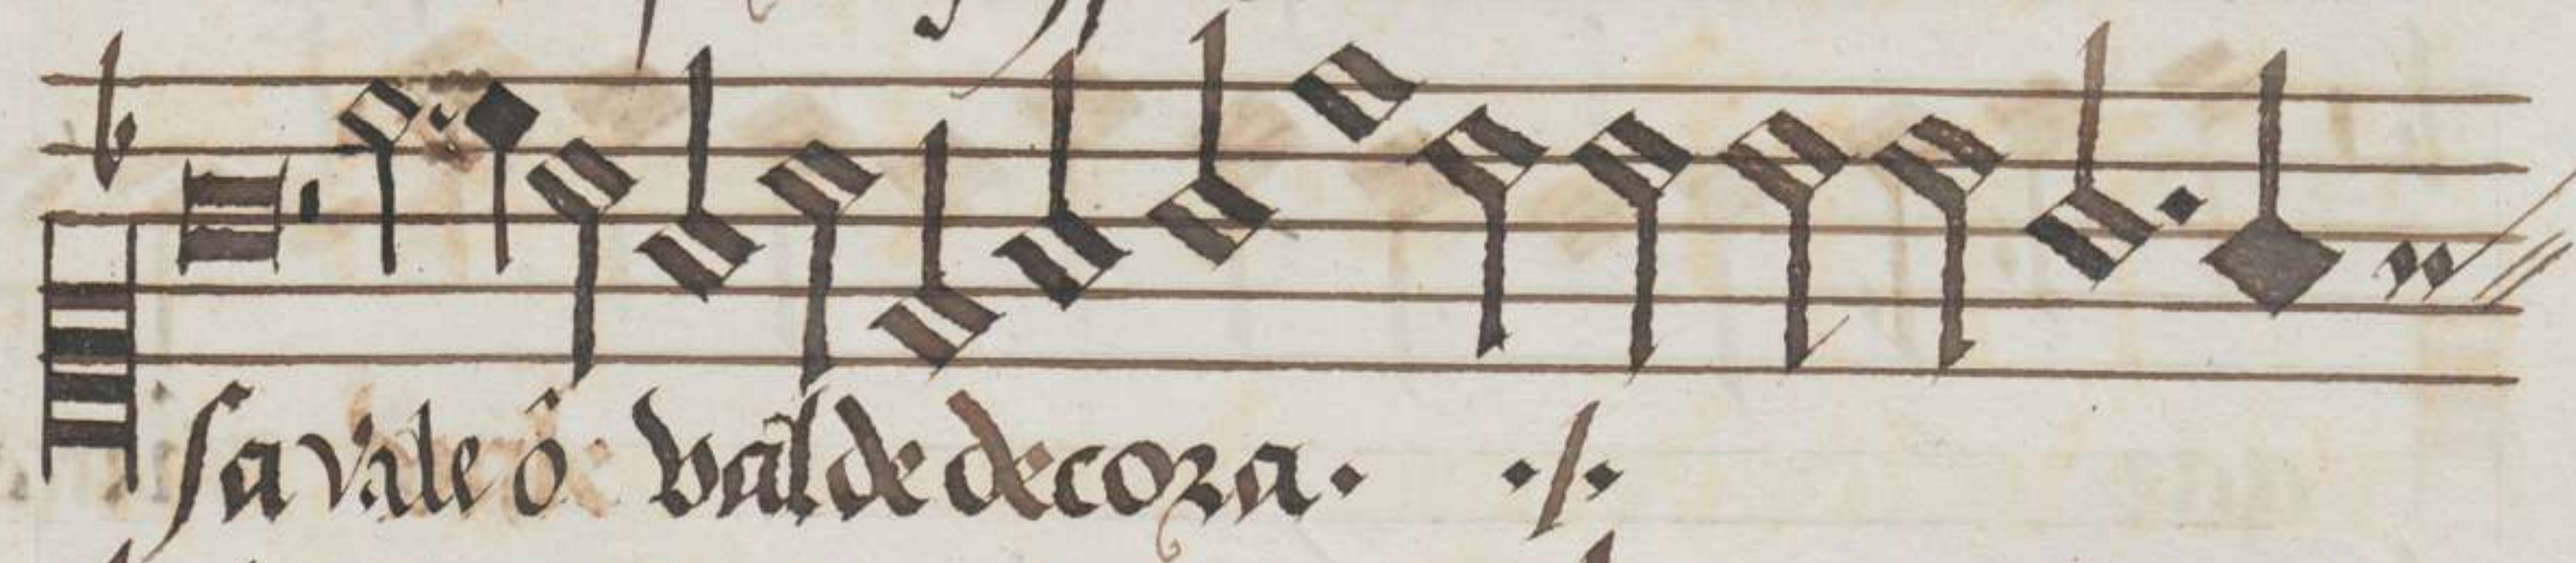 sa vale ô valde decora. ·/·